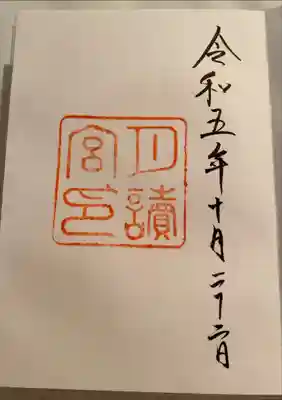 令和五年十月二十二日
月讀
宮印